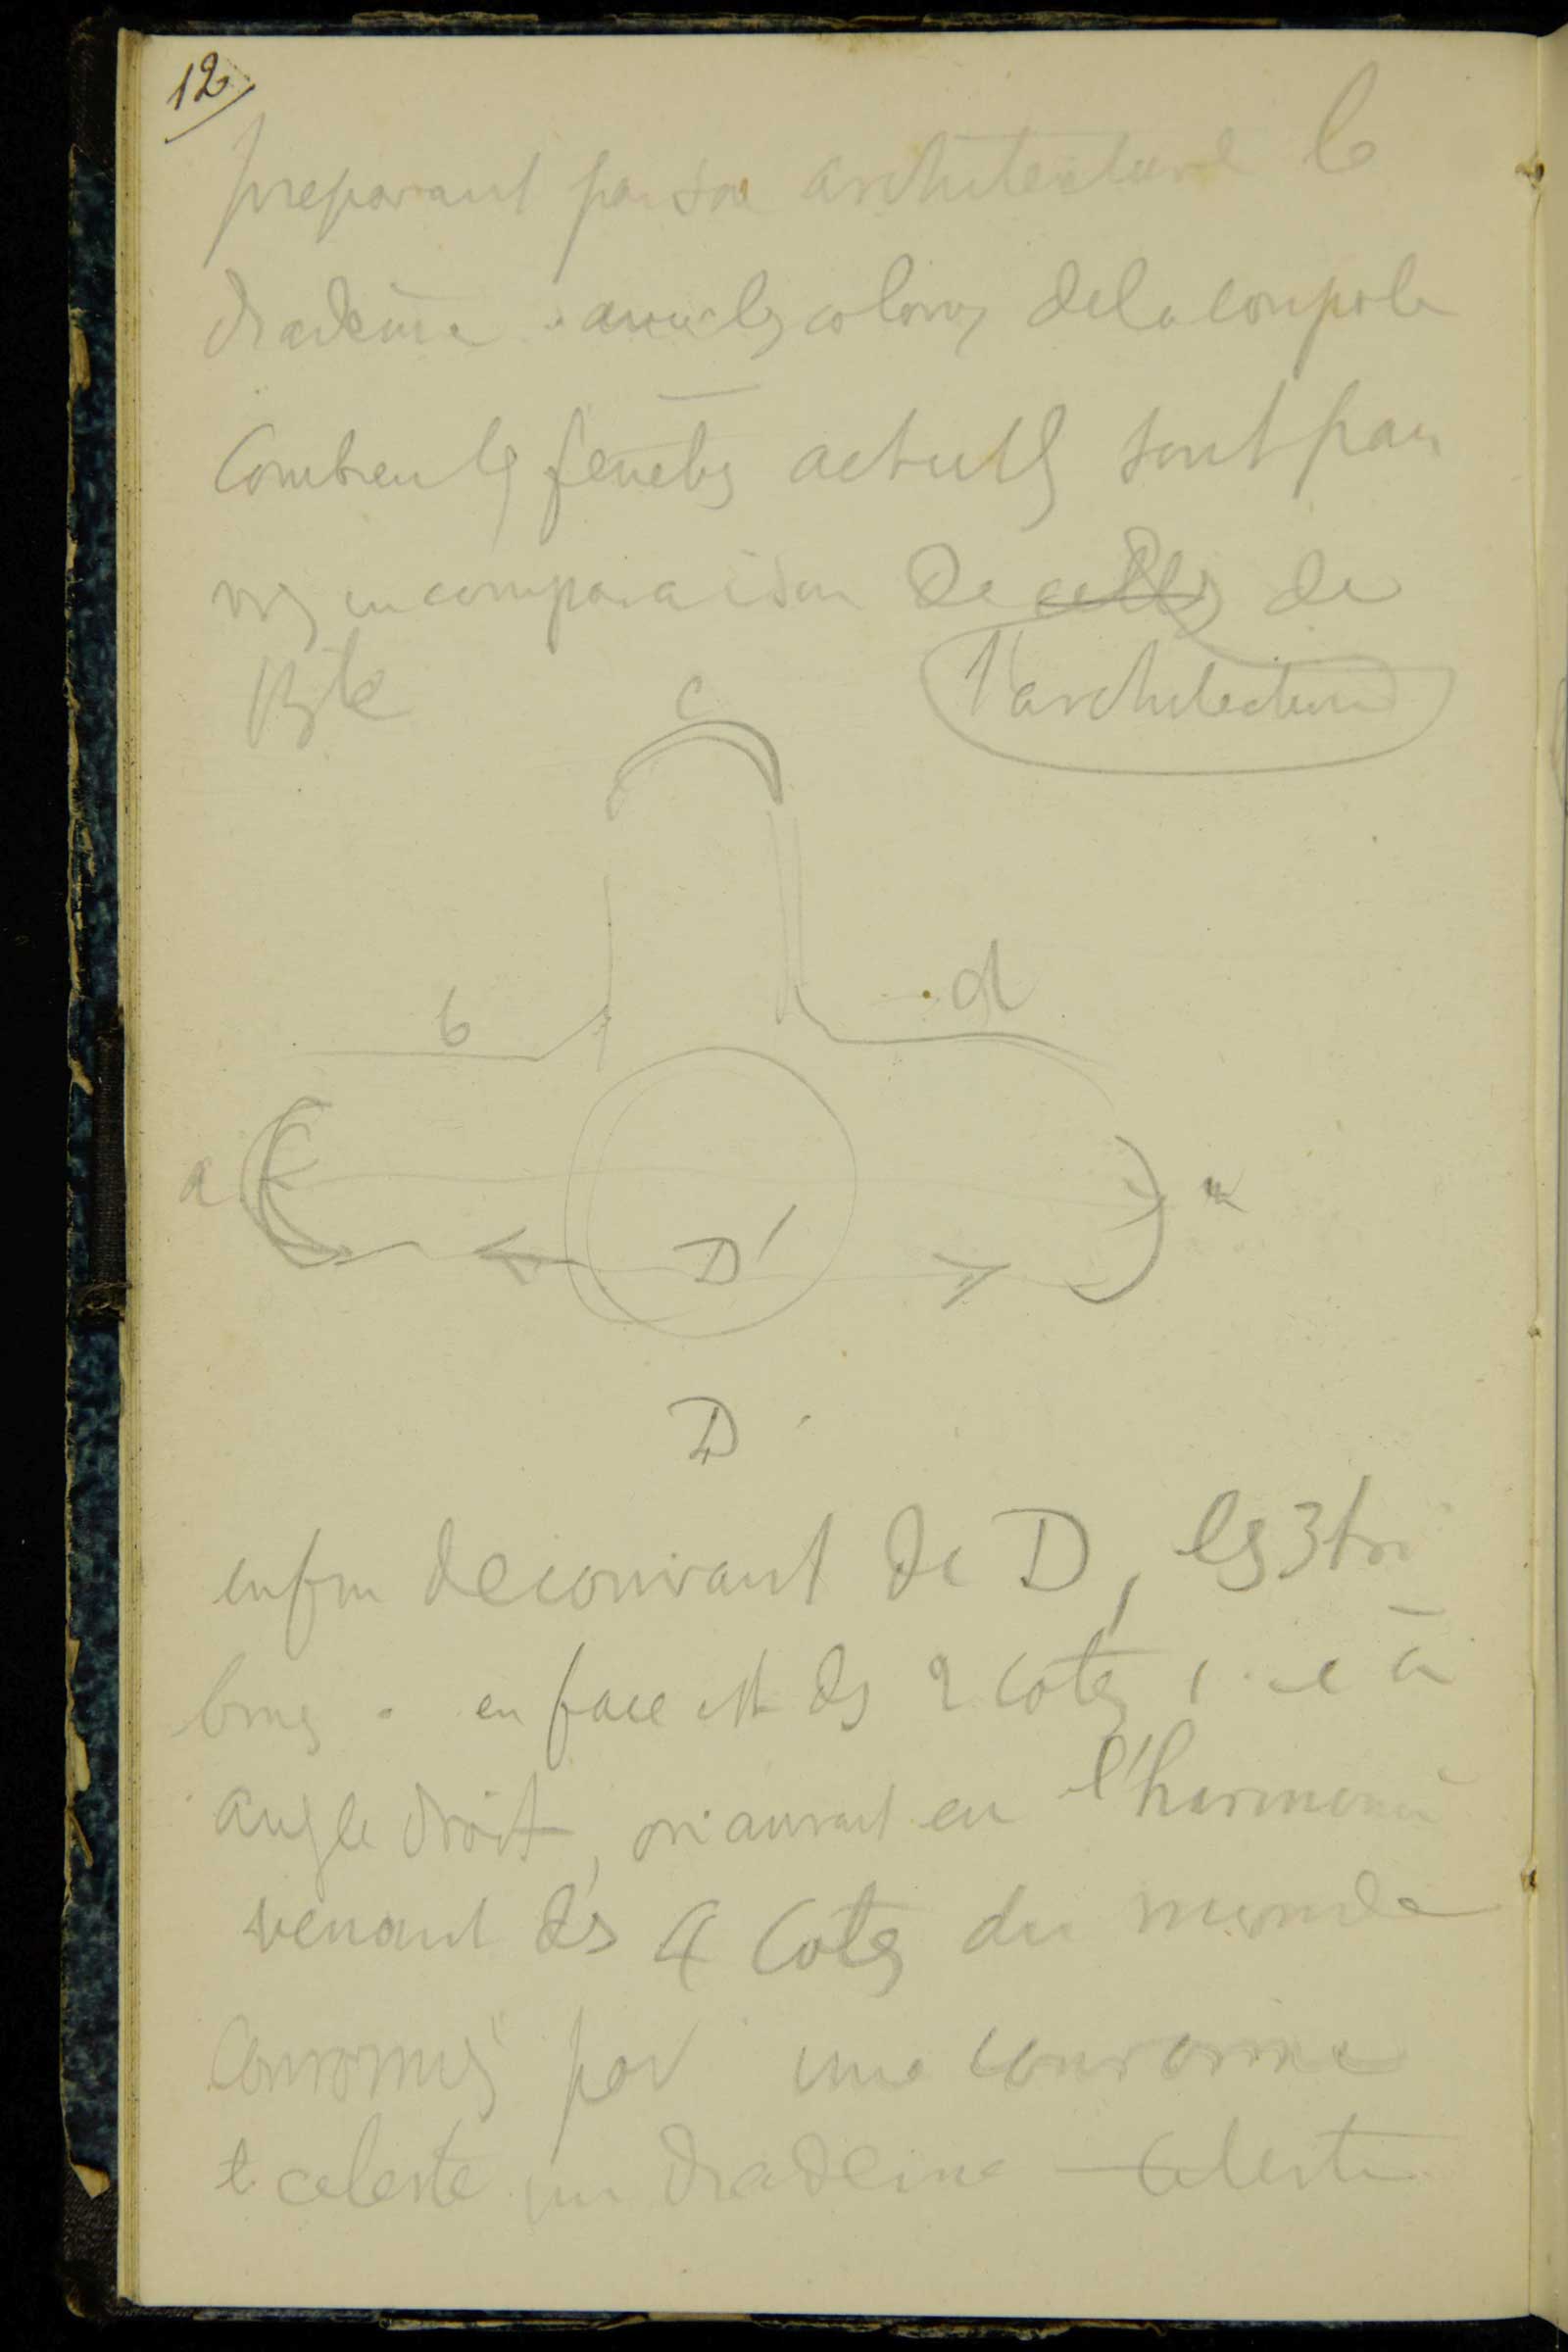 12
preparant par son architecture le
diademe avec les colones de la coupole
Combien les fenetres actuells sont pau
vres en comparaison de celles de
l'architecture
Bte
c
b
d
a
D'
D
enfin decouvrant de D, les 3 tri
bunes. en face et des 2 cotes, à
angle droit, en l'harmonie
venant des 4 cotes du monde
Couronnés par une couronne
celeste un diademe celeste